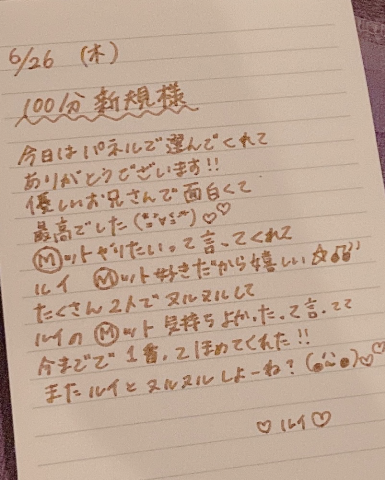 6/26 (木)
100分 新規様
今日は パネルで選んでくれて
ありがとうございます!!
優しいお兄さんで面白くて
最高でした (*´∀`*)♡♡
Ⓜット やりたいって言ってくれて
ルイ Ⓜット好きだから嬉しい☆♫
たくさん 2人で ヌルヌルして
ルイの Ⓜット 気持ちよかったって言ってて
今までで 1番ってほめてくれた!!
また ルイと ヌルヌル しよーね? (●´ᵕ`●)♡♡
♡ ルイ ♡